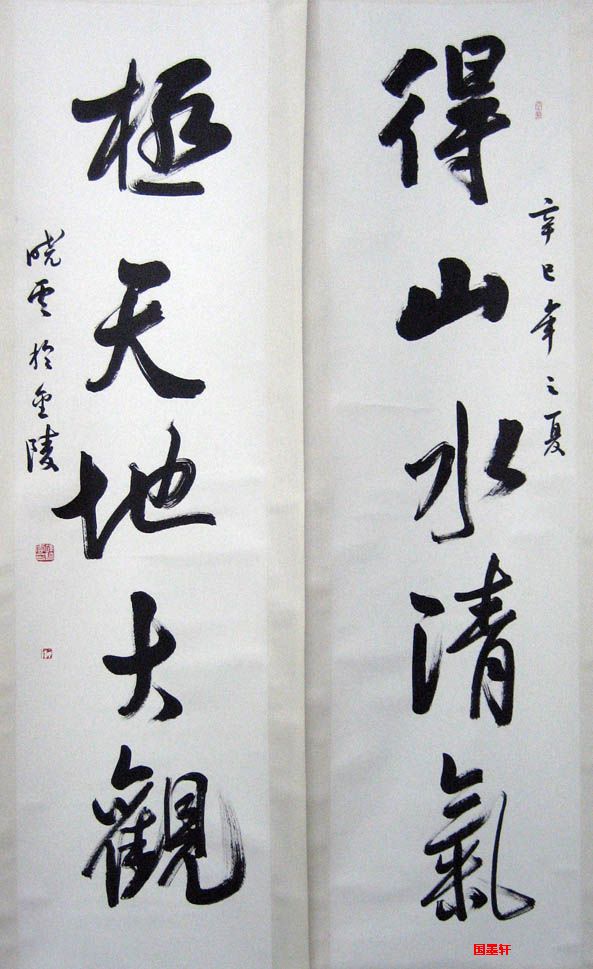 辛巳年之夏
得山水清氣
極天地大觀
晓雲於金陵
国墨轩